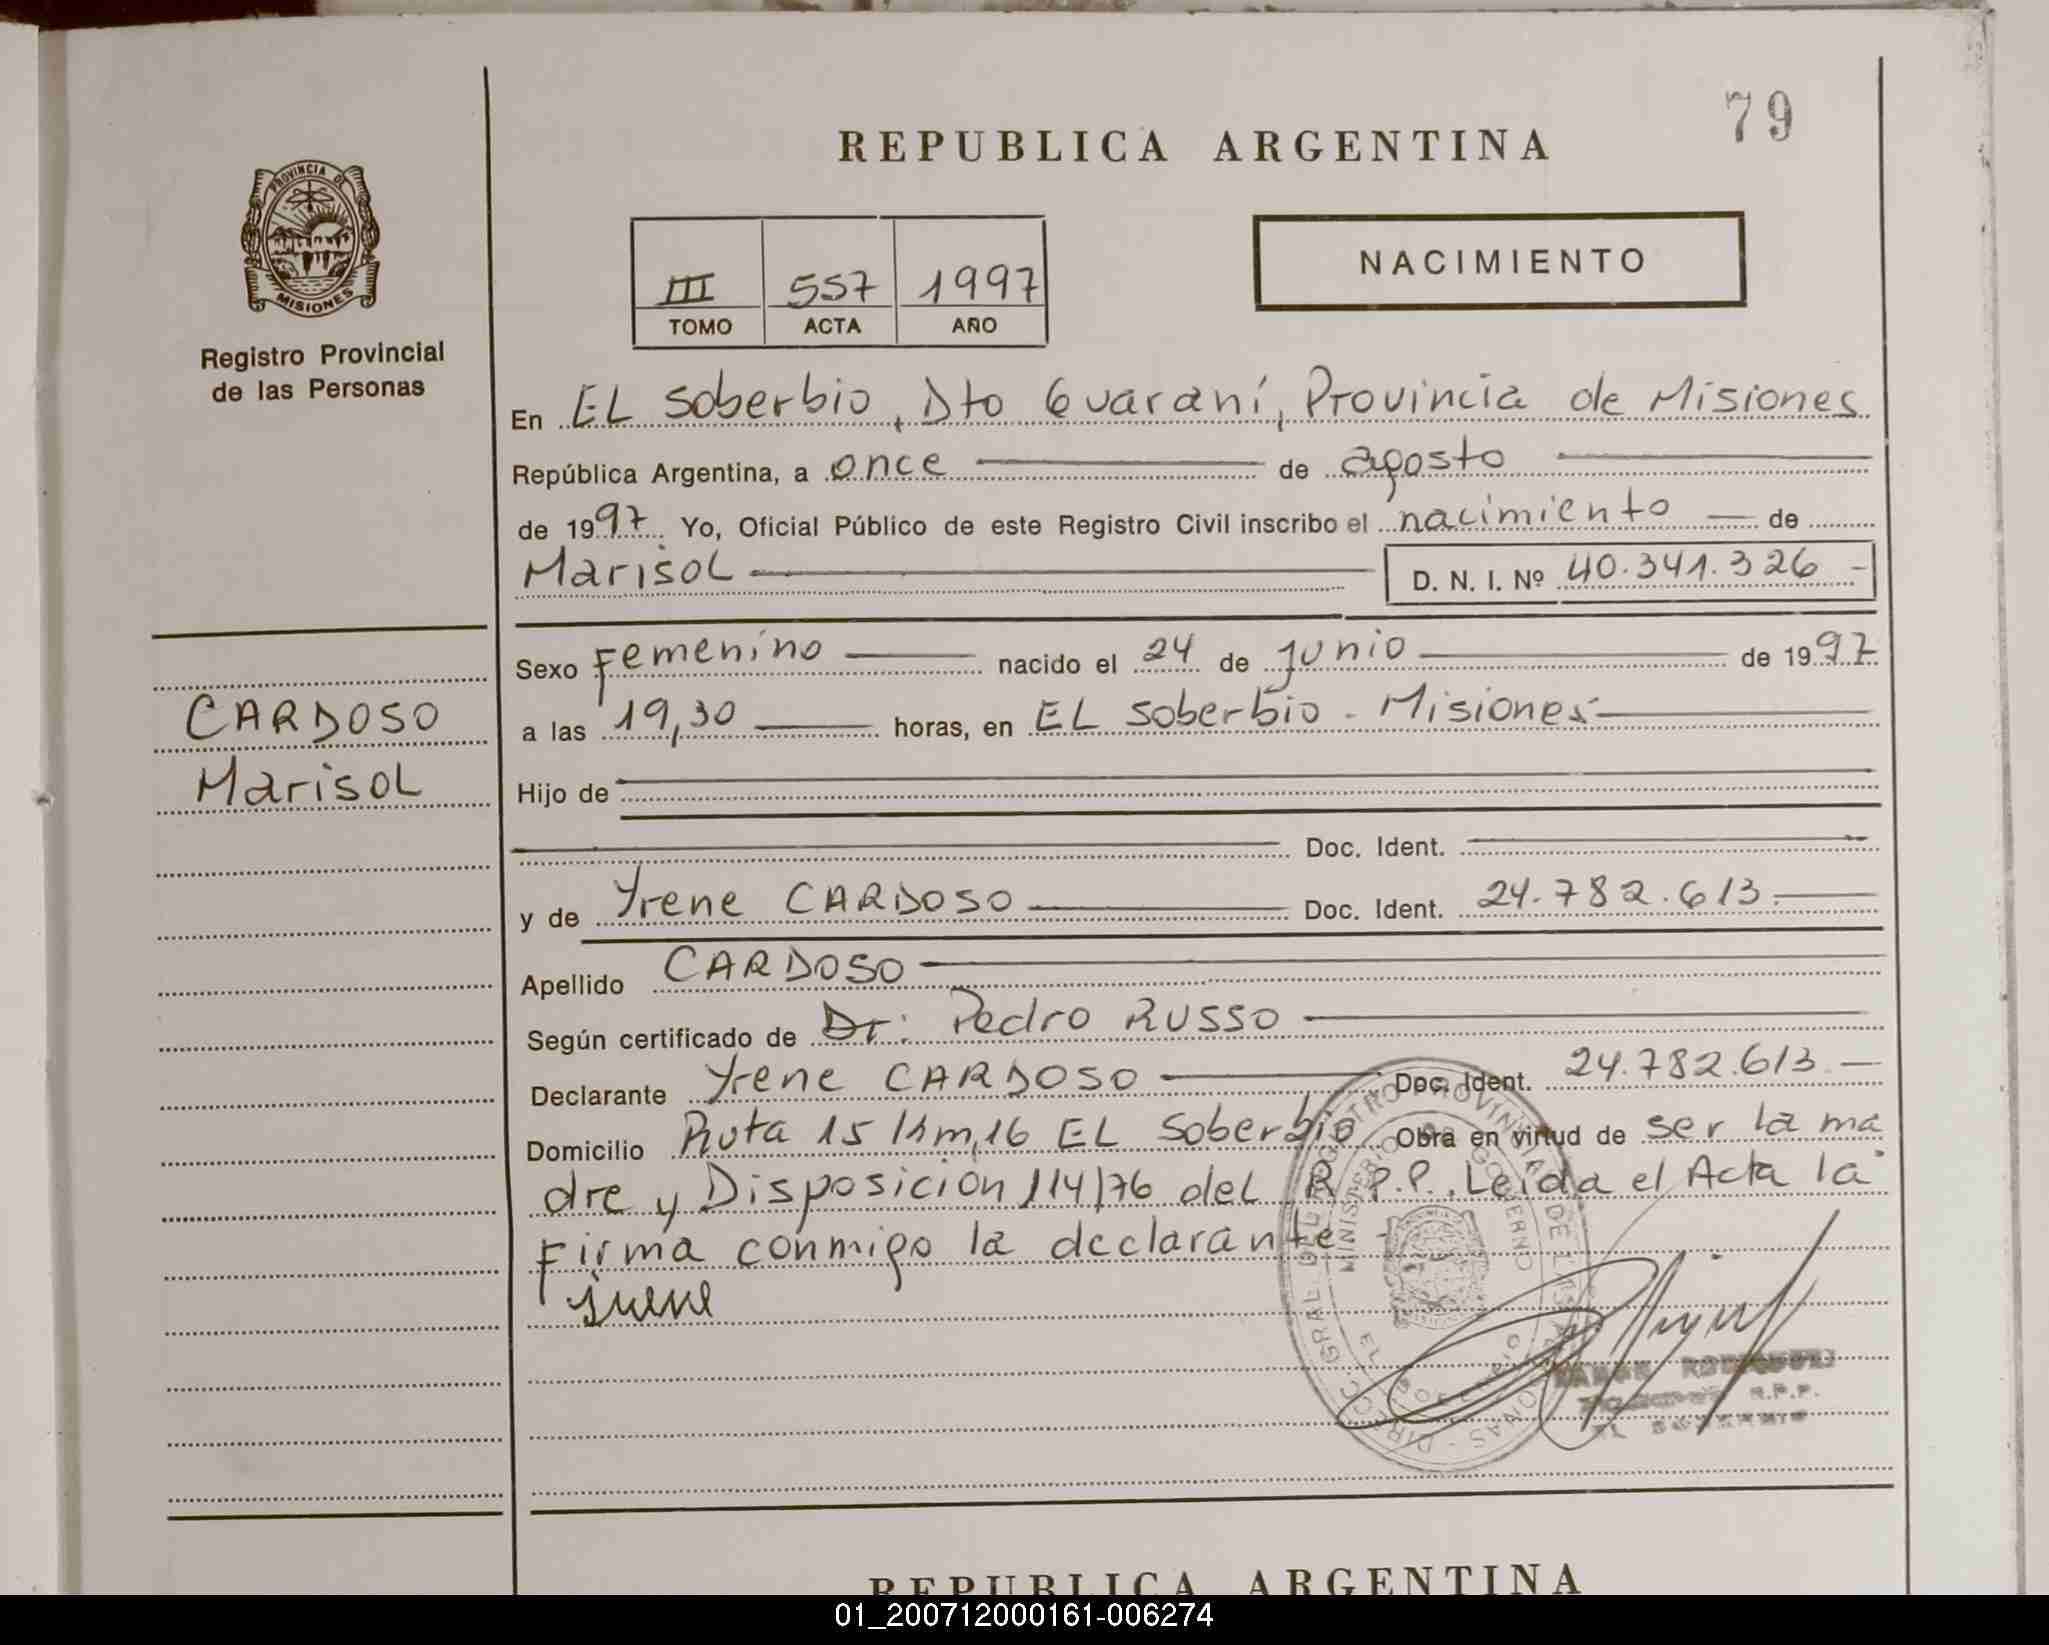 79
REPUBLICA ARGENTINA
PROVINCIA DE
MISIONES
Registro Provincial
de las Personas
III 557 1997
TOMO ACTA AÑO
NACIMIENTO
En EL Soberbio, Dto Guaraní, Provincia de Misiones
República Argentina, a once de agosto
de 1997 Yo, Oficial Público de este Registro Civil inscribo el nacimiento de
Marisol D. N. I. Nº 40.341.326 -
Sexo Femenino nacido el 24 de junio de 1997
CARDOSO
Marisol
a las 19,30 horas, en EL Soberbio - Misiones
Hijo de
Doc. Ident.
y de Yrene CARDOSO Doc. Ident. 24.782.613.
Apellido CARDOSO
Según certificado de Dr: Pedro RUSSO
Declarante Yrene CARDOSO Doc. Ident. 24.782.613
Domicilio Ruta 15 Km,16 EL Soberbio Obra en virtud de ser la ma
dre y Disposición 114/76 del R.P.P. Leída el Acta la
Firma conmigo la declarante -
R.P.P.
REPUBLICA ARGENTINA
01_200712000161-006274